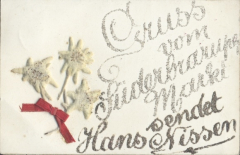 Gruss
vom
Süderbraruper
Markt
sendet
Hans Nissen